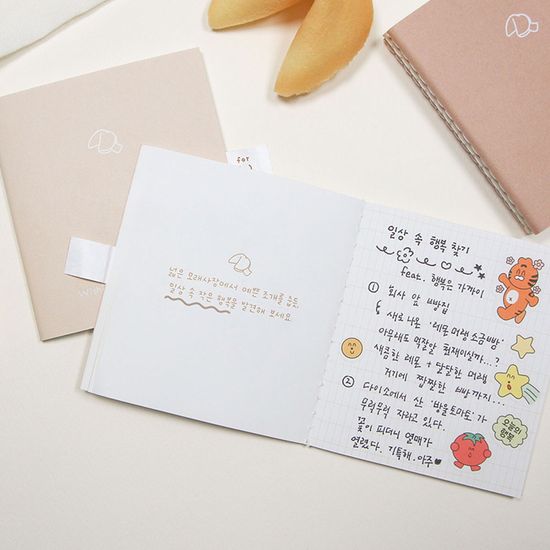 for
넓은 모래사장에서 예쁜 조개를 줍듯
일상 속 작은 행복을 발견해 보세요
일상 속 행복 찾기
feat. 행복은 가까이
① 회사 앞 빵집
새로 나온 '레몬 머랭 소금빵'
아무래도 먹잘알 천재이실까...?
새콤한 레몬 + 달달한 머랭
거기에 짭짤한 빵까지...
② 다이소에서 산 '방울토마토'가
무럭무럭 자라고 있다.
꽃이 피더니 열매가
열렸다. 기특해. 아주
오늘의
행복